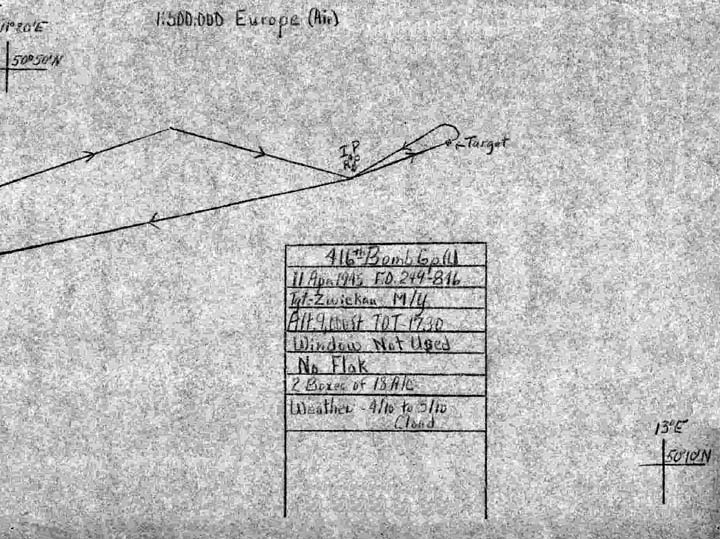 1:500,000 Europe (Air)
11°20'E
50°50'N
I.P.
Target
416th Bomb Gp (L)
11 Apr 1945 F.O. 249-846
Tgt-Zwickau M/Y
Alt. TOT-1730
Window Not Used
No Flak
2 Boxes of 18 A/C
Weather - 4/10 to 5/10
Cloud
13°E
50°10'N